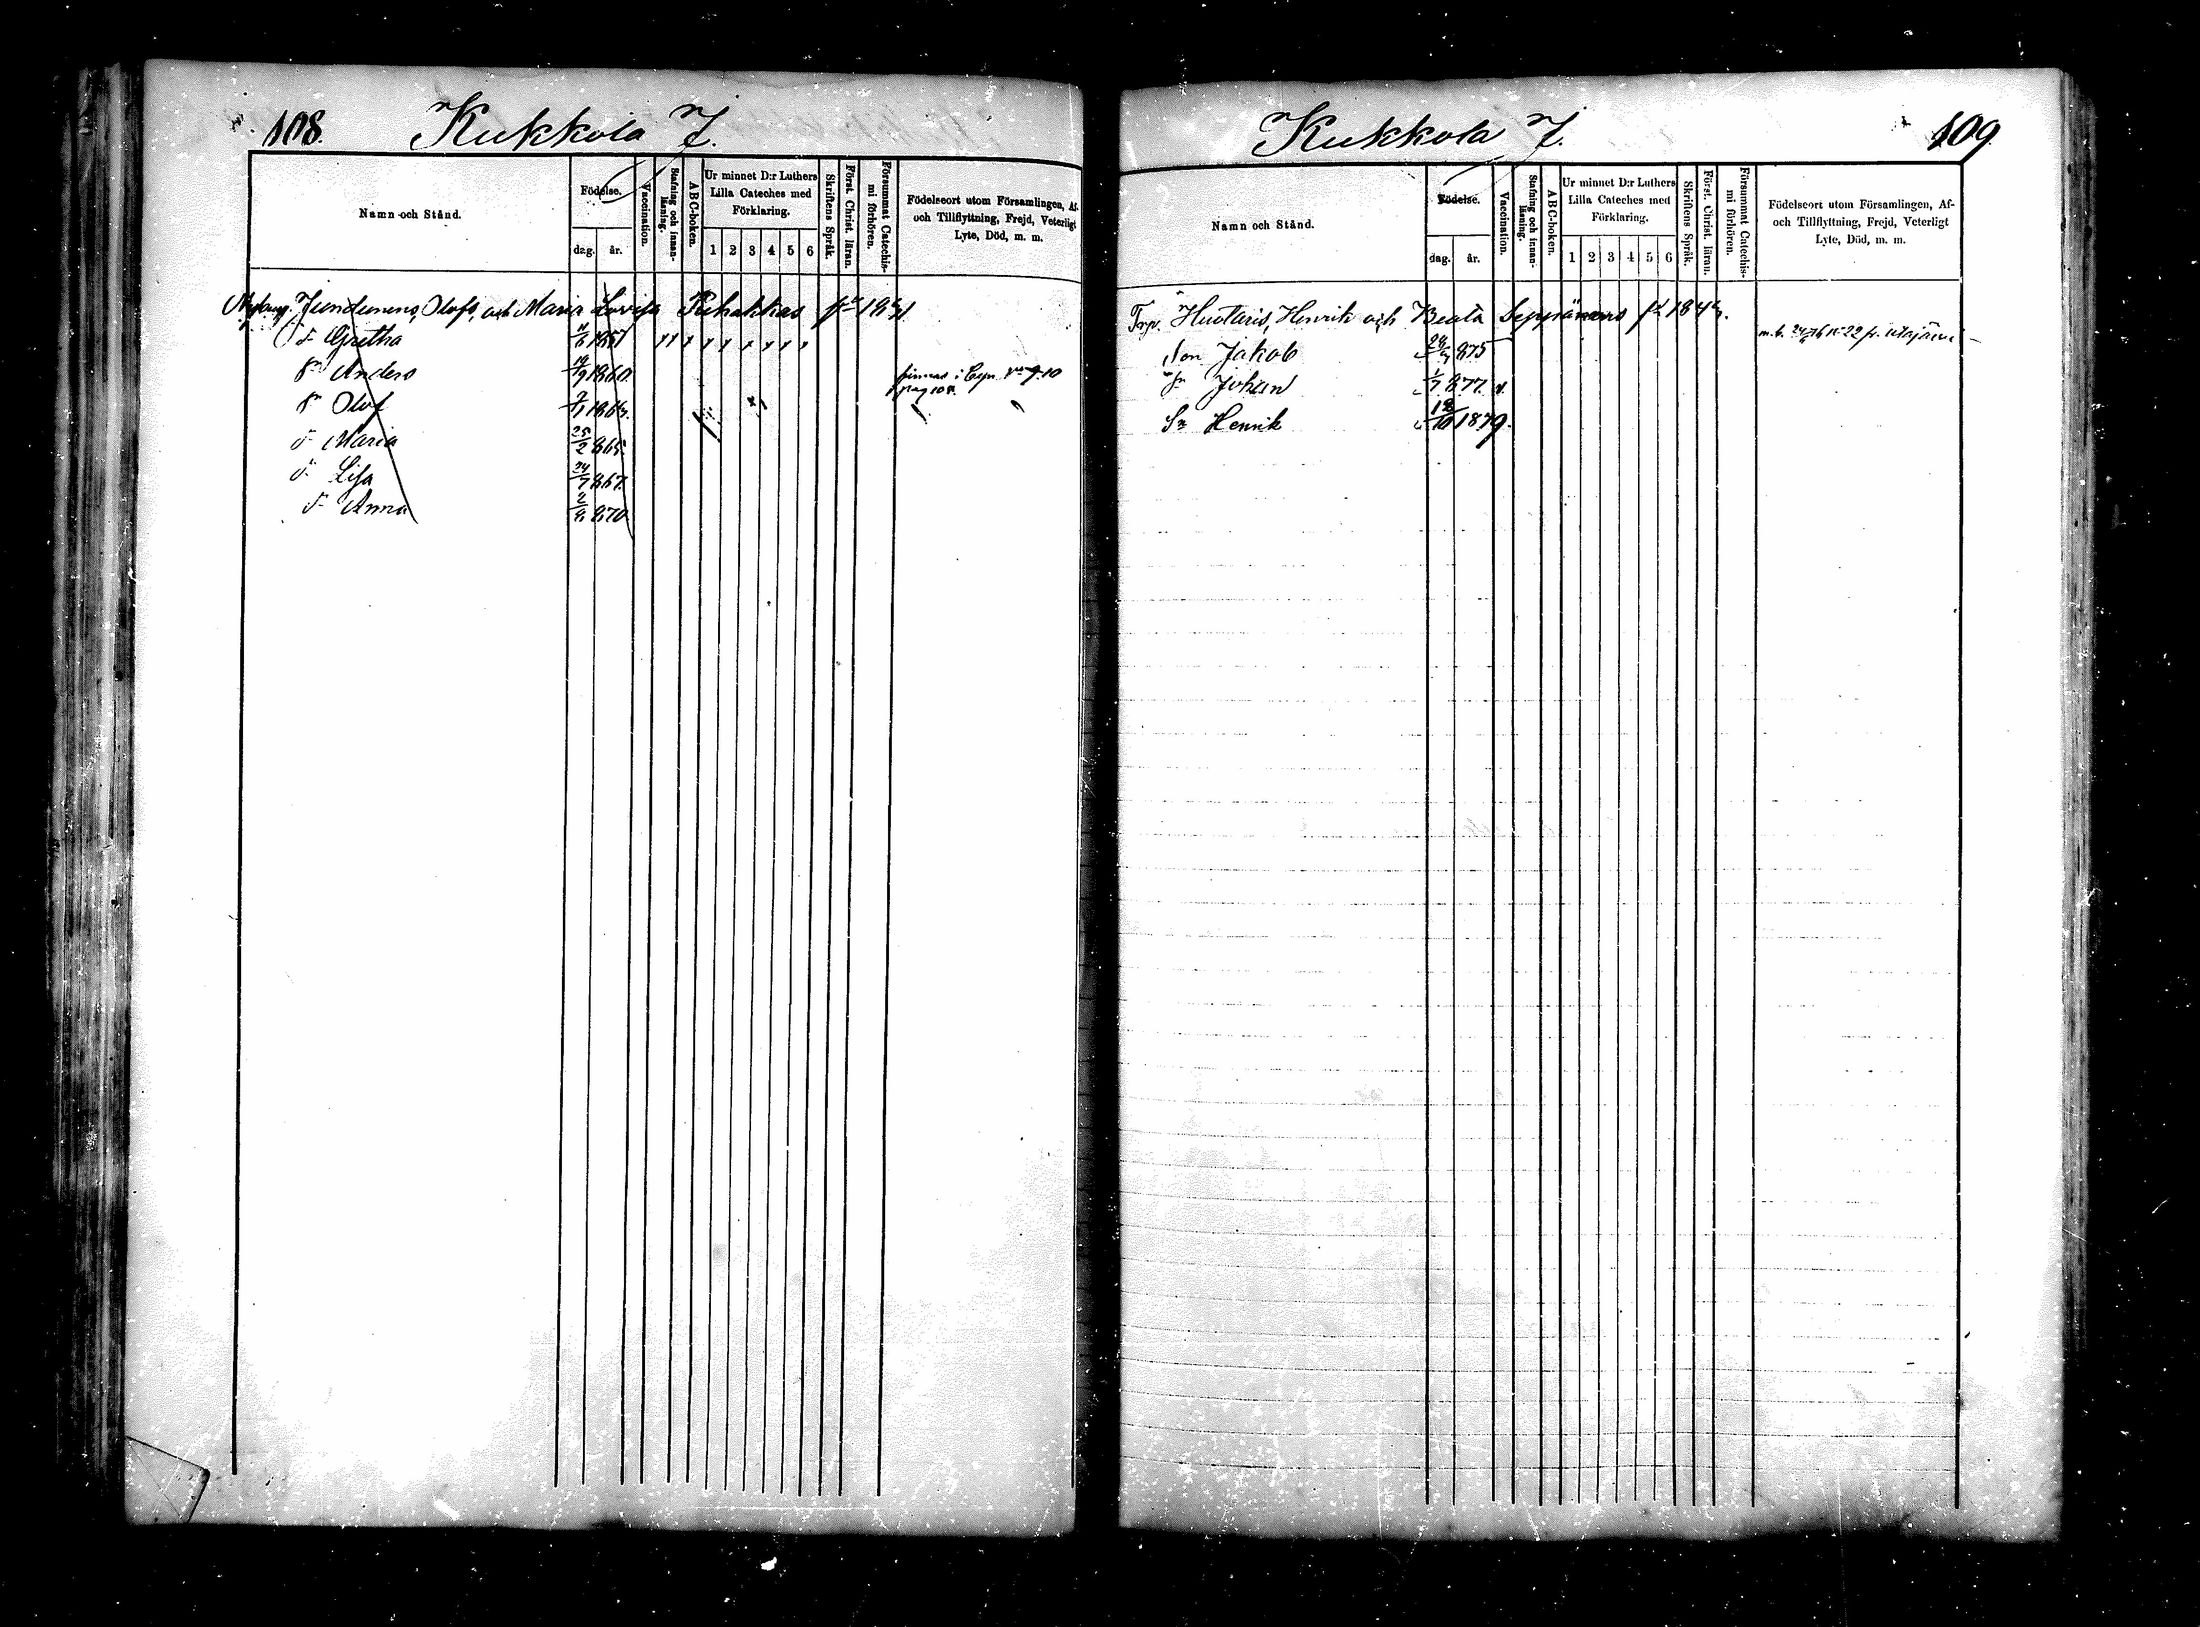 108. Kukkola 7.
Namn och Stånd.
Födelse.
dag. år.
Vaccination.
Stafning och innan-
läsning.
ABC-boken.
Ur minnet D:r Luthers
Lilla Cateches med
Förklaring.
1 2 3 4 5 6
Skriftens Språk.
Först. Christ. läran.
Försummat Catechis-
mi förhören.
Födelseort utom Församlingen, Af-
och Tillflyttning, Frejd, Veterligt
Lyte, Död, m. m.
Olofs, och Maria Lovisa
Gretha 1851
Anders 19/9 1860.
finnas i
pag 108.
Olof
Maria 25/2 865.
Lisa 24/7 867.
Anna 870
Kukkola 7. 109
Namn och Stånd.
Födelse.
dag. år.
Vaccination.
Stafning och innan-
läsning.
ABC-boken.
Ur minnet D:r Luthers
Lilla Cateches med
Förklaring.
1 2 3 4 5 6
Skriftens Språk.
Först. Christ. läran.
Försummat Catechis-
mi förhören.
Födelseort utom Församlingen, Af-
och Tillflyttning, Frejd, Veterligt
Lyte, Död, m. m.
Huotaris, Henrik och Beata Seppänens
Son Jakob 875
Johan 1/7 877.
Sn Henrik 1879.